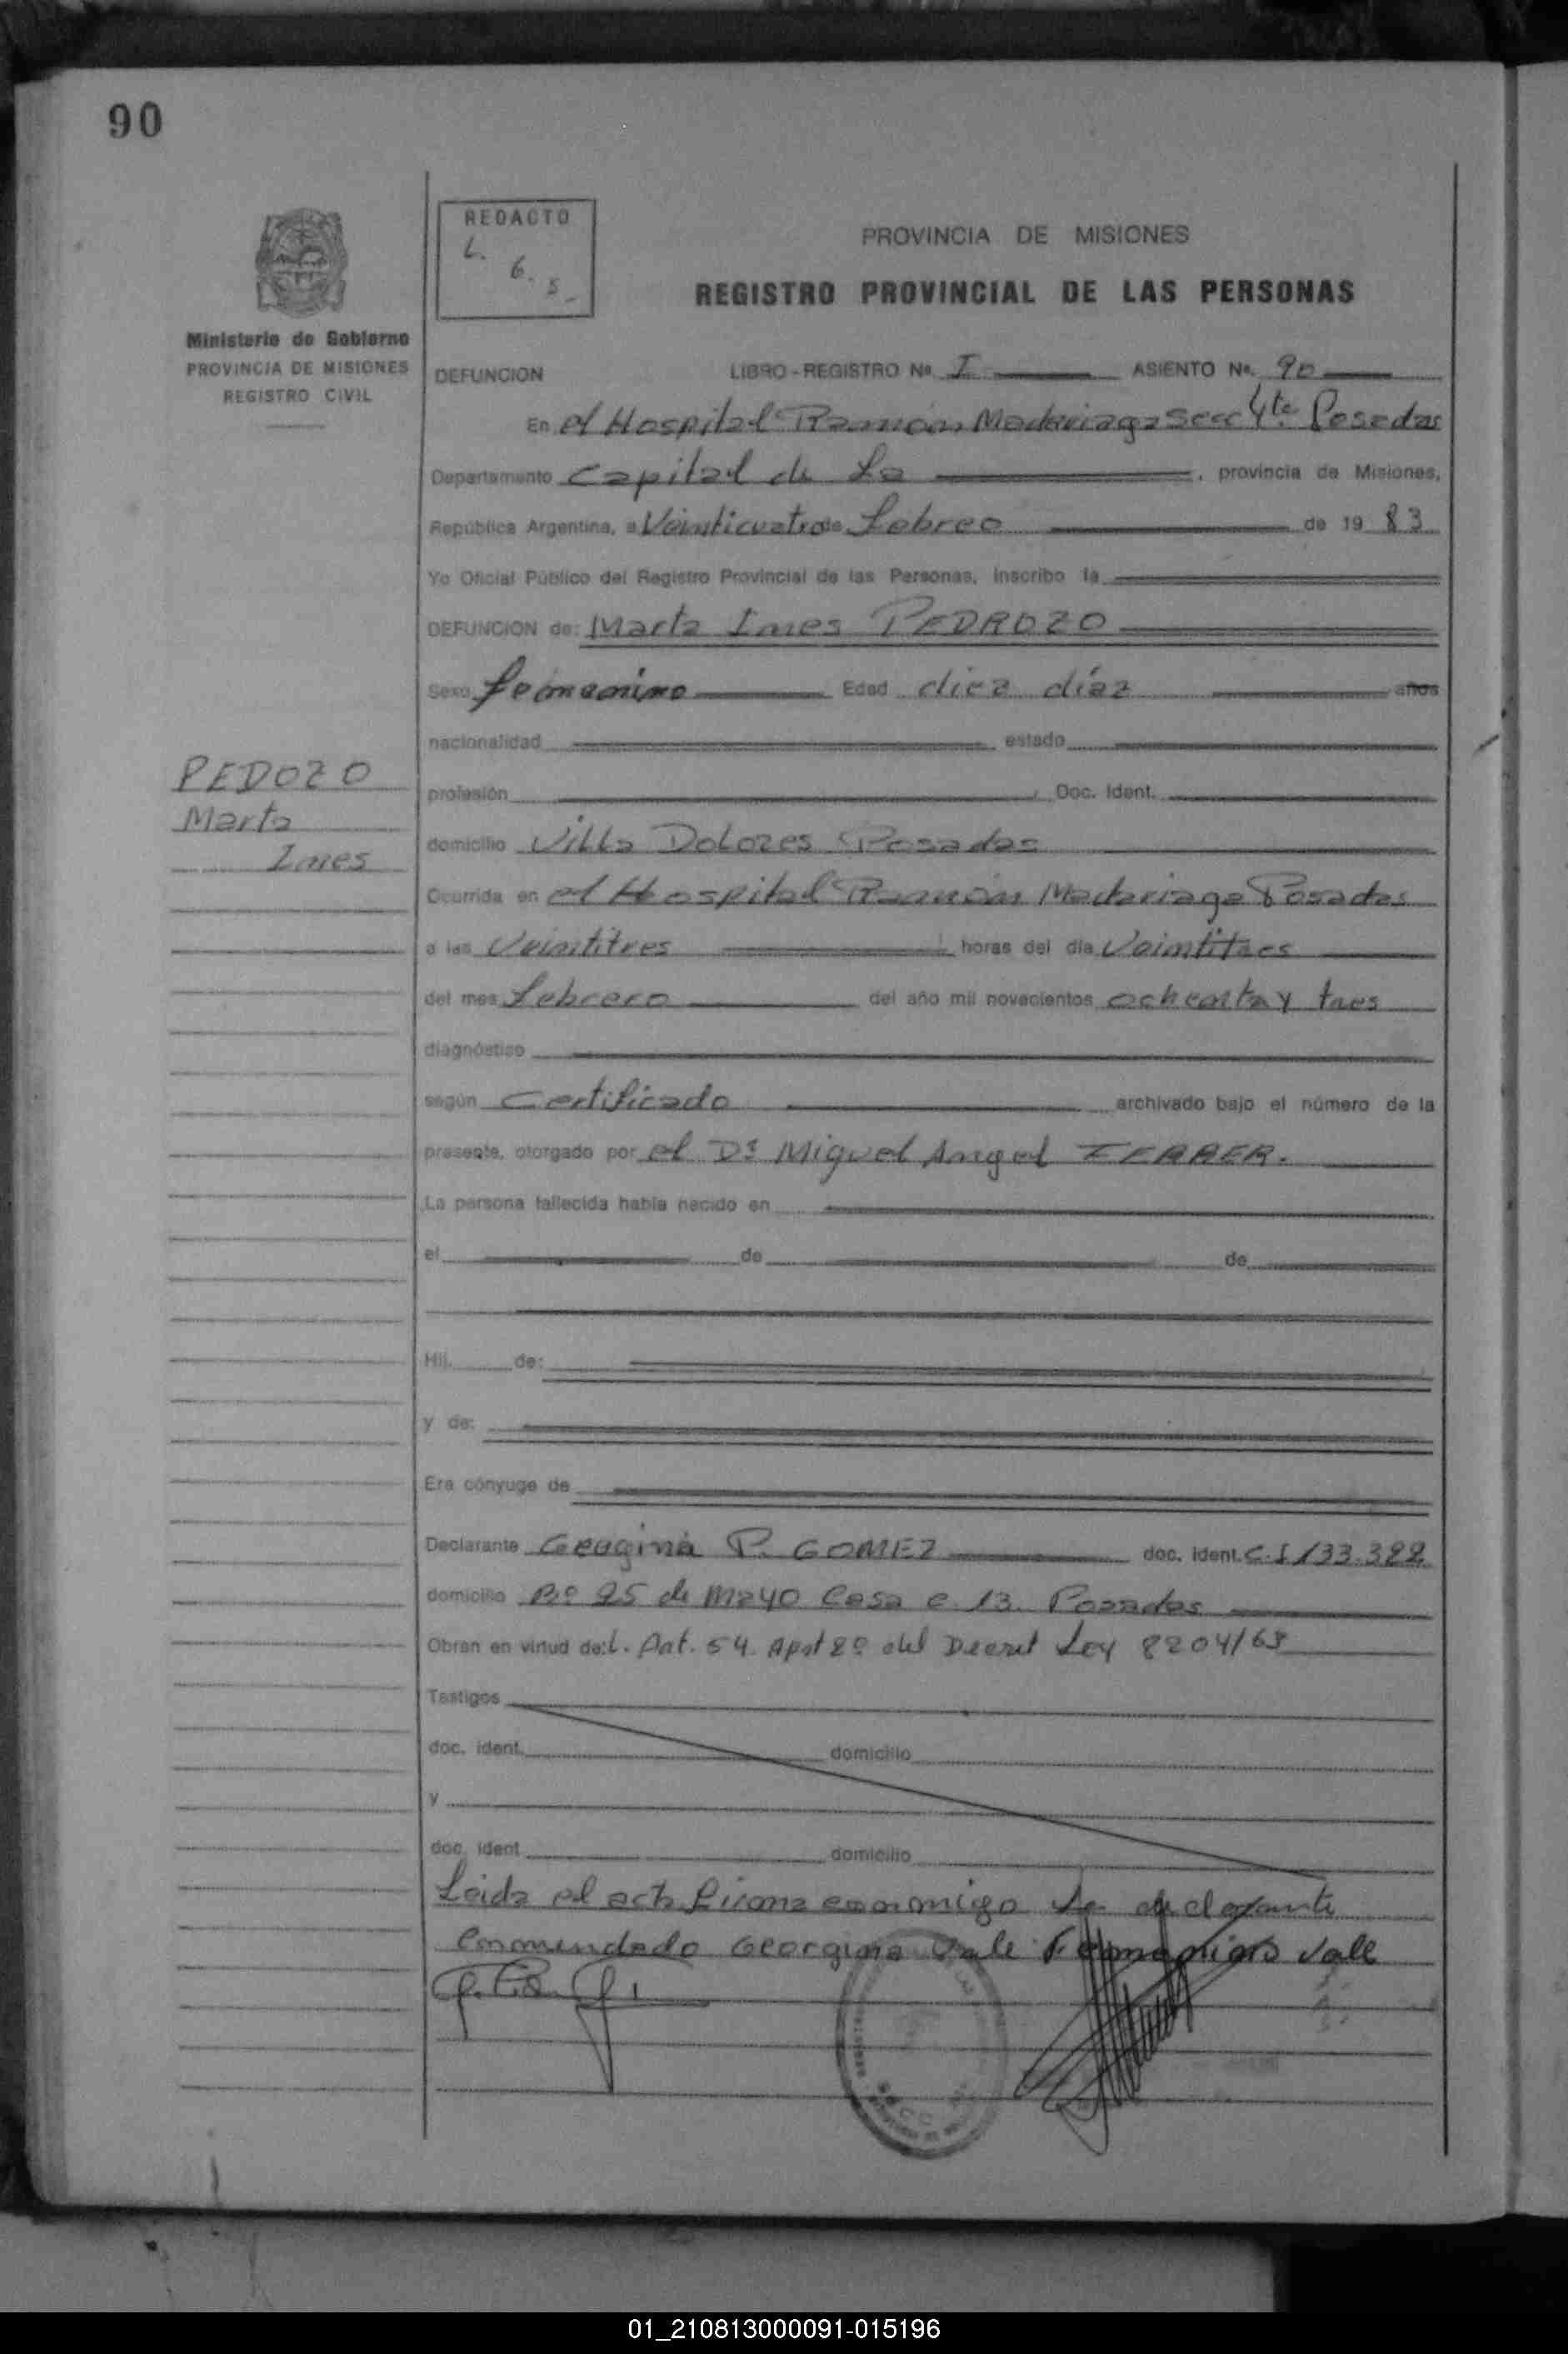 90
REDACTO
L. 6. S_
Ministerio de Gobierno
PROVINCIA DE MISIONES
REGISTRO CIVIL
PROVINCIA DE MISIONES
REGISTRO PROVINCIAL DE LAS PERSONAS
DEFUNCION LIBRO - REGISTRO Nº I ASIENTO Nº. 90
En el Hospital Ramón Madariaga Secc 4ta Posadas
Departamento Capital de La , provincia de Misiones,
República Argentina, a Veinticuatro de febreo de 19 83
Yo Oficial Público del Registro Provincial de las Personas, inscribo la
DEFUNCION de: Marta Ines PEDROZO
Sexo femenino Edad diez díaz años
nacionalidad estado
PEDOZO
Marta
Ines
profesión Doc. Ident.
domicilio Villa Dolores Posadas
Ocurrida en el Hospital Ramón Madariaga Posadas
a las Veintitres horas del día Veintitres
del mes febrero del año mil novecientos ochenta y tres
diagnóstico
según Certificado archivado bajo el número de la
presente, otorgado por el Dr Miguel Angel FERRER.
La persona fallecida había nacido en
el de de
Hij de:
y de:
Era cónyuge de
Declarante Georgina P. GOMEZ doc. ident. C.I 133.322
domicilio Bº 25 de Mayo Casa e 13. Posadas
Obran en virtud de: L. Art. 54. Apat 2º del Decret Ley 8204/63
Testigos
doc. ident. domicilio
y
doc. ident domicilio
Leida el acta firma conmigo la declarante
Enmendado Georgina Vale Femenino Vale
01_210813000091-015196